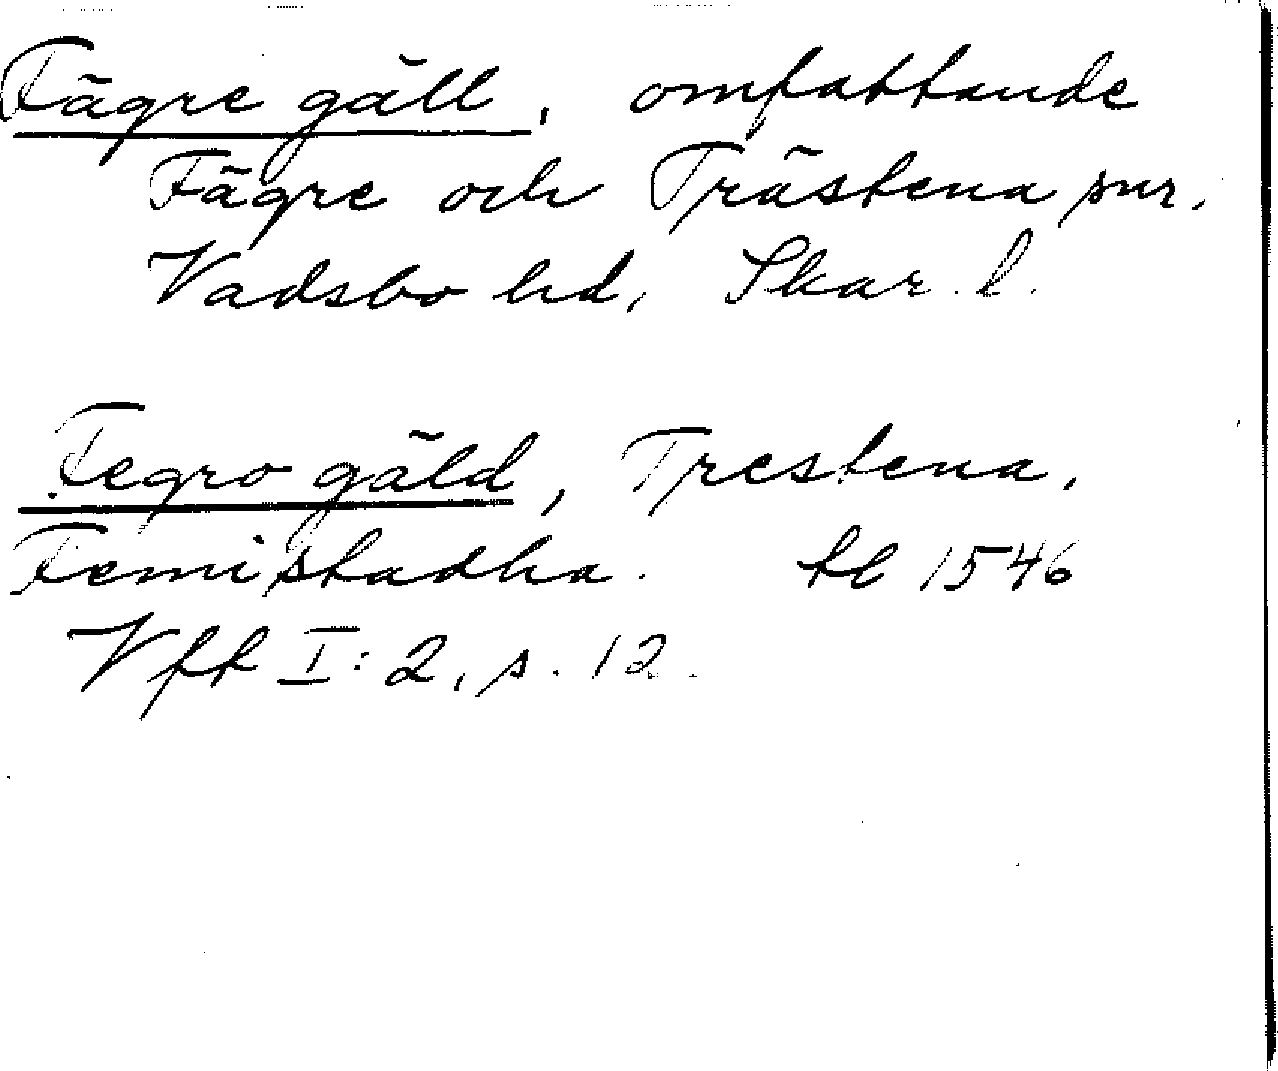 Fägre gäll, omfattande
Fägre och Trästena snr.
Vadsbo hd, Skar. l.
Fegro gäld, Trestena,
Femistadha. tl 1546
Vff I: 2, s. 12.